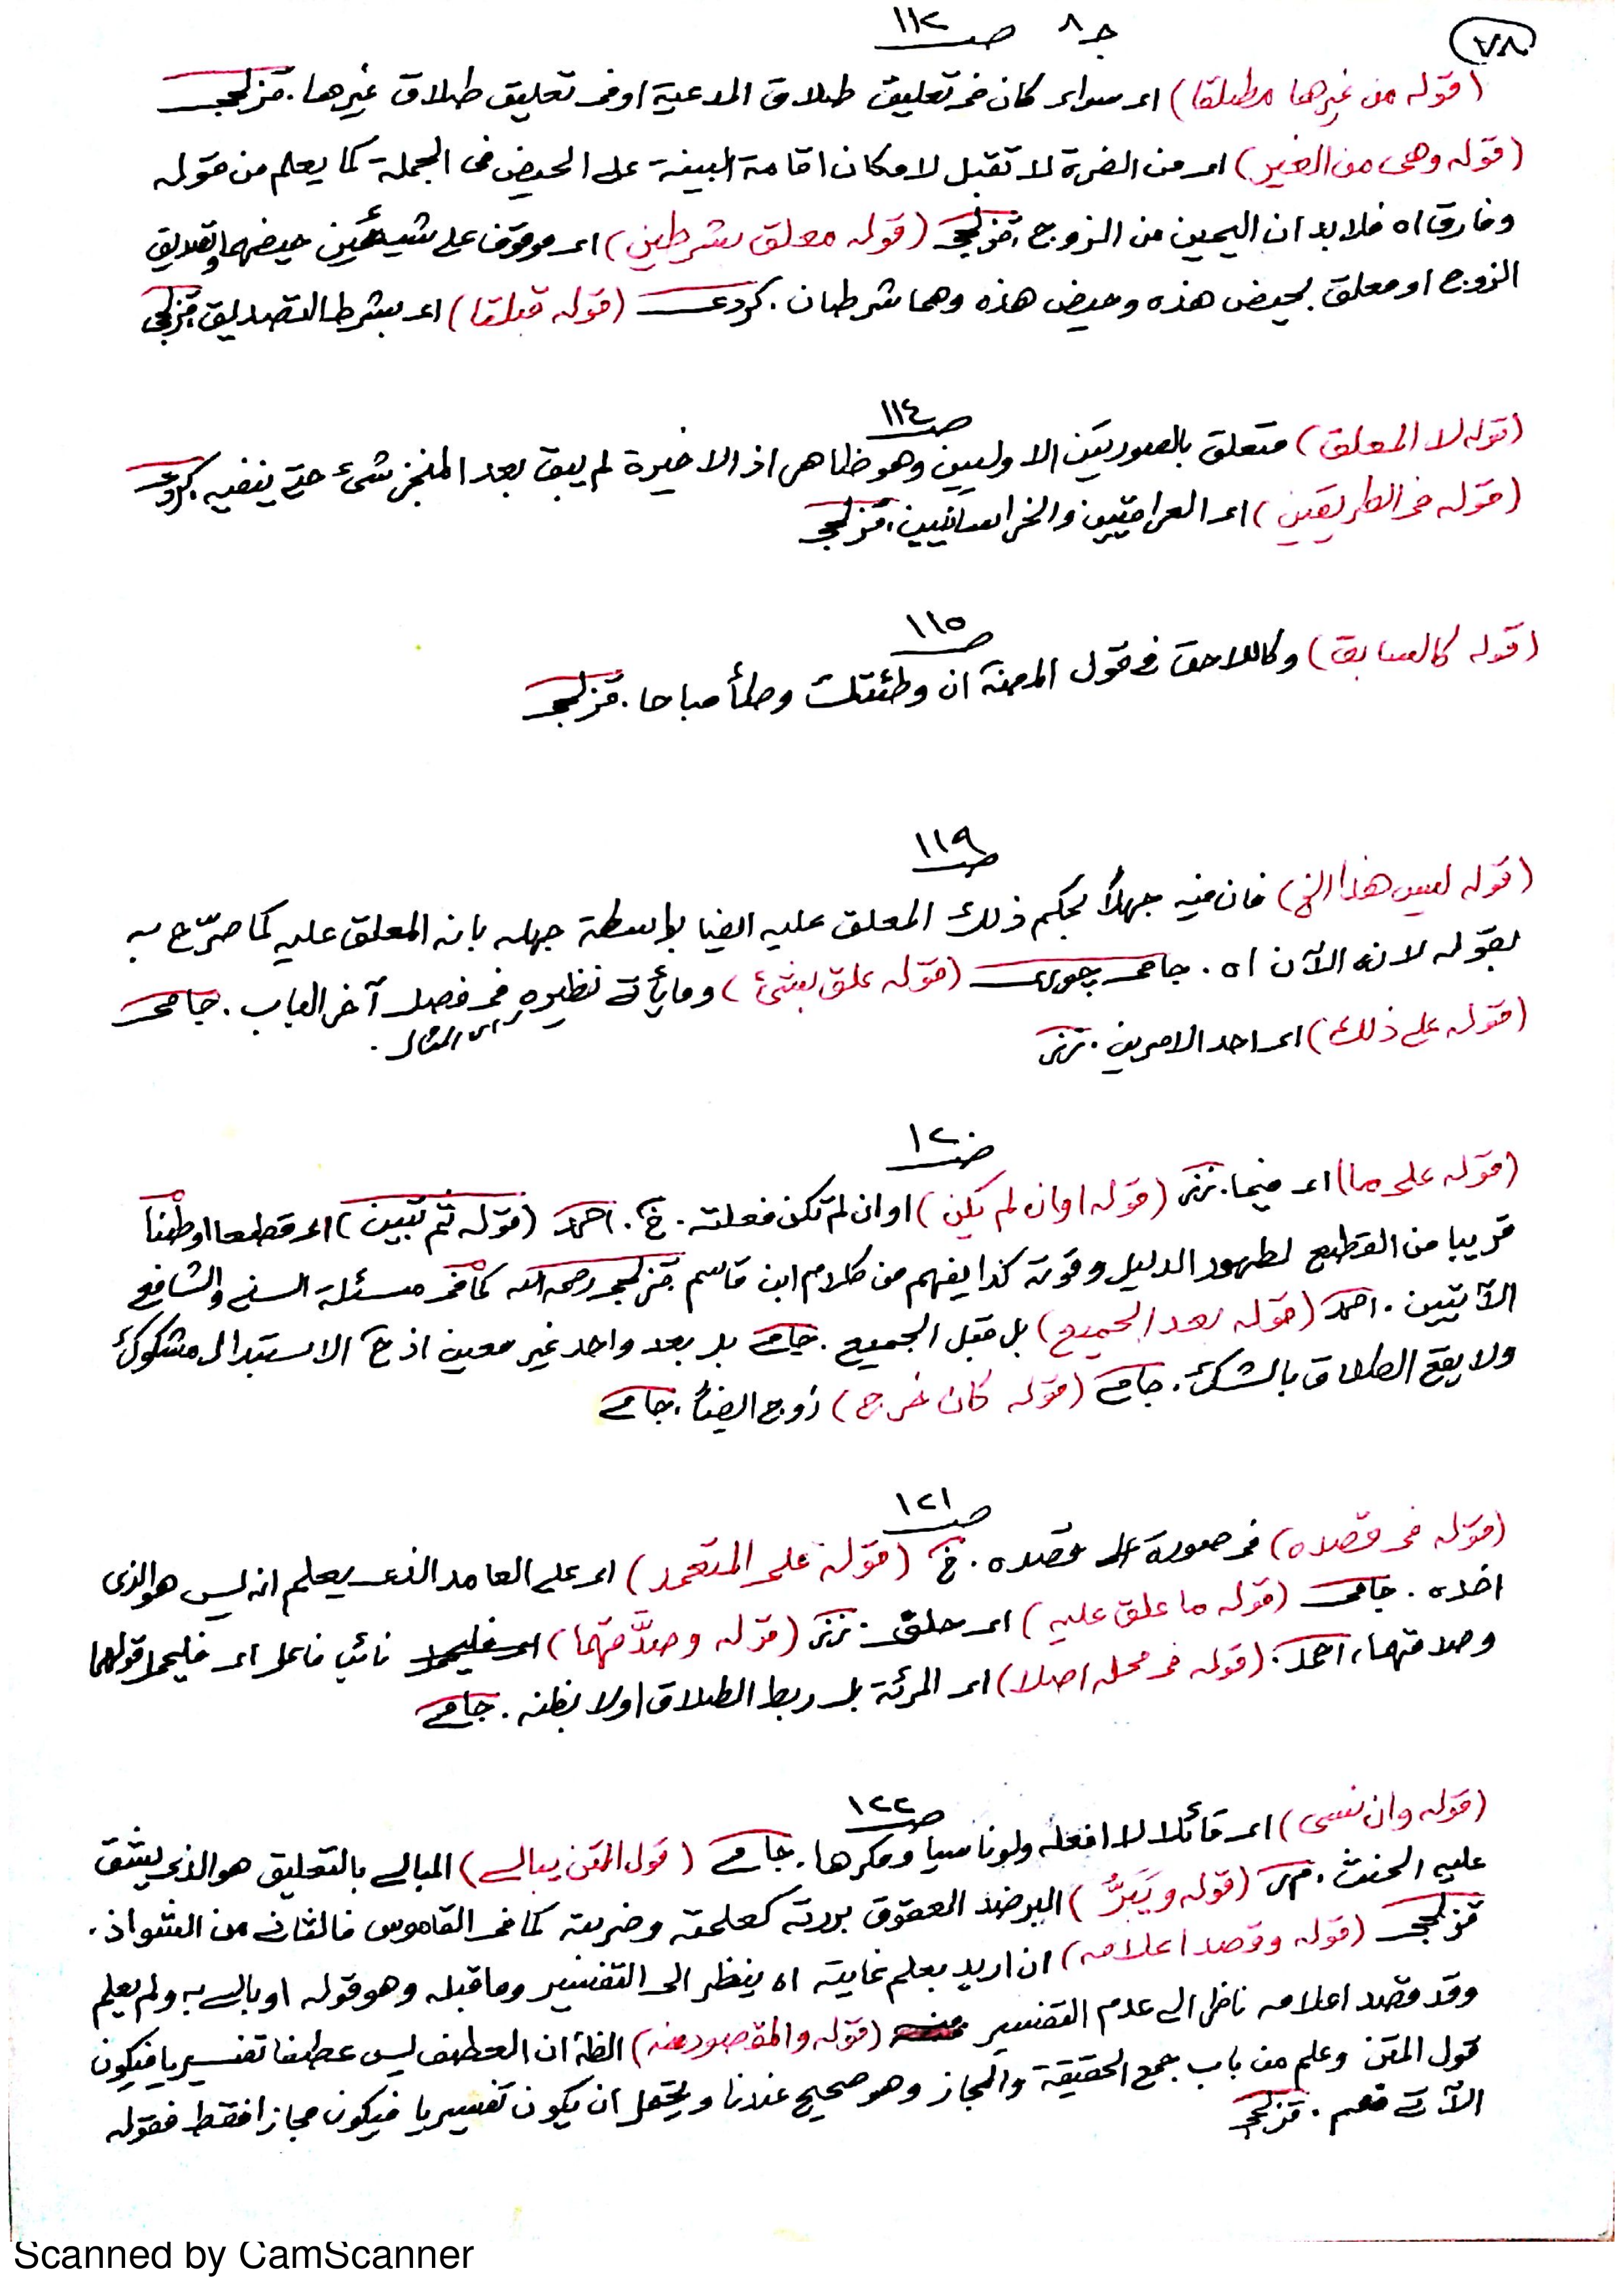 ٧٨
ج ٨ صـ ١١٢
(قوله من غيرها مطلقا) اى سواء كان فى تعليق طلاق المدعية او فى تعليق طلاق غيرها. قزلجى
(قوله وهى من الغير) اى من الضرة لا تقبل لامكان اقامة البينة على الحيض فى الجملة كما يعلم من قوله
وفارق اه فلا بد ان اليمين من الزوج. قزلجى (قوله معلق بشرطين) اى موقوف على شيئين حيضهما وتصديق
الزوج او معلق بحيض هذه وحيض هذه وهما شرطان. كردى (قوله قبلقا) اى بشرط التصديق. قزلجى
صـ ١١٤
(قوله لا المعلق) متعلق بالصورتين الاوليين وهو ظاهر اذ الاخيرة لم يبق بعد المنجز شئ حتى ينفيه. كردى
(قوله فى الطريقين) اى العراقيين والخراسانيين. قزلجى
صـ ١١٥
(قوله كالسابق) وكاللاحق فى قول المصنف ان وطئتك وطأ مباحا. قزلجى
صـ ١١٩
(قوله ليس هذا الخ) فان فيه جهلاً بحكم ذلك المعلق عليه ايضا بواسطة جهله بانه المعلق عليه كما صرّح به
بقوله لانه الآن اه. جامى چورى (قوله علق بشئ) وما يأتى نظيره فى فصل آخر الباب. جامى
اى المثال.
(قوله على ذلك) اى احد الامرين. نزنر
صـ ١٢٠
(قوله على ما) اى فيما. نزنر (قوله او ان لم يكن) او ان لم تكن فعلته. خ. احمد (قوله ثم تبين) اى قطعا او ظناً
قريبا من القطع لظهور الدليل وقوته كذا يفهم من كلام ابن قاسم قزلجى رحمه الله كما فى مسئلة السنى والشافعى
الآتيتين. احمد (قوله بعد الجميع) بل قبل الجميع. جامى بل بعد واحد غير معين اذ ح الاستبدال مشكوك
ولا يقع الطلاق بالشك. جامى (قوله كان خرج) زوج ايضاً. جامى
صـ ١٢١
(قوله فى قصده) فى صورة قصده. خ (قوله على المتعمد) اى على العامد الذى يعلم انه ليس هو الذى
اخذه. جامى (قوله ما علق عليه) اى حلق. نزنر (قوله وصدَّقتهما) نائب فاعل اى فليحمل قولهما
وصدقتهما، احمد. (قوله فى محله اصلا) اى المرئة بل ربط الطلاق اولا بظنه. جامى
صـ ١٢٢
(قوله وان نسى) اى قائلا لا افعله ولو ناسيا ومكرها. جامى (قول المتن يبالى) المبالى بالتعليق هو الذى يشق
عليه الحنث. م ر (قوله ويَبَرُّ) البر ضد العقوق بررته كعلمته وضربته كما فى القاموس فالثانى من الشواذ.
قزلجى (قوله وقصد اعلامه) ان اريد بعلم غايته اه ينظر الى التفسير وما قبله وهو قوله او يبالى به ولم يعلم
وقد قصد اعلامه ناظر الى عدم التفسير (قوله والمقصود منه) الظ ان العطف ليس عطفا تفسيريا فيكون
قول المتن وعلم من باب جمع الحقيقة والمجاز وهو صحيح عندنا ويحتمل ان يكون تفسيريا فيكون مجازا فقط فقوله
الآتى قسم. قزلجى
Scanned by CamScanner